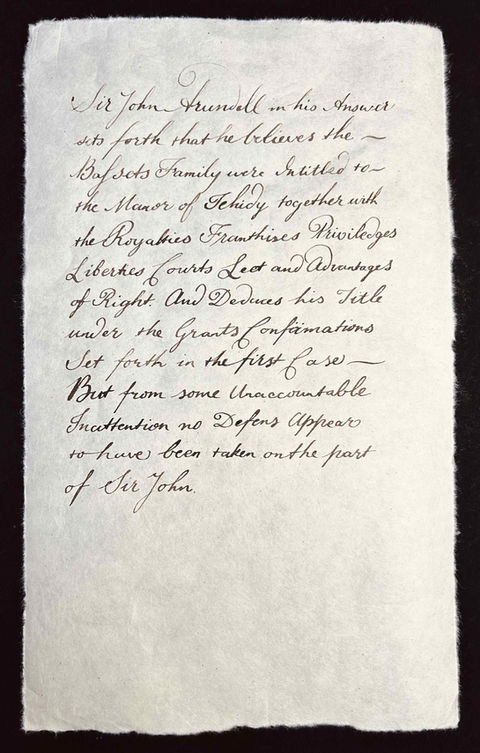 Sir John Arundell in his Answer
sets forth that he believes the —
Bassets Family were Intitled to —
the Manor of Tehidy together with
the Royalties Franthises Priviledges
Liberties Courts Leet and Advantages
of Right. And Deduces his Title
under the Grants Confirmations
Set forth in the first Case —
But from some Unaccountable
Inattention no Defens Appear
to have been taken on the part
of Sir John.